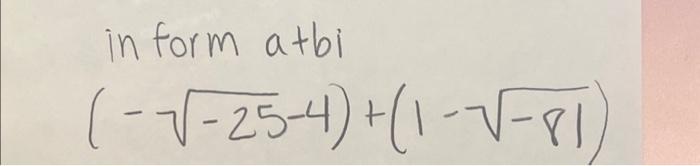 in form a+bi
(-√-25-4)+(1-√-81)